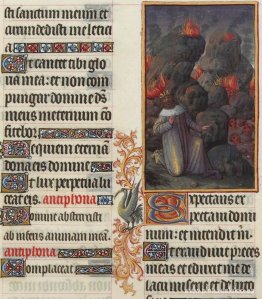 sti sanctum meum et
circumdedisti me letici
a
Et cantet tibi glo
ria mea: et non com
pungar domine ds
meus in eternum co
fitebor tibi
Requiem eternā
dona eis domine
Et lux perpetua lu
ceat eis. antiphona
Domine abstraxisti
ab inferis animam meam.
antiphona
Complaceat
Expectans ex
pectavi domi
num: et intendit m
Et exaudivit preces
meas et eduxit me de
lacu miserie et de luto